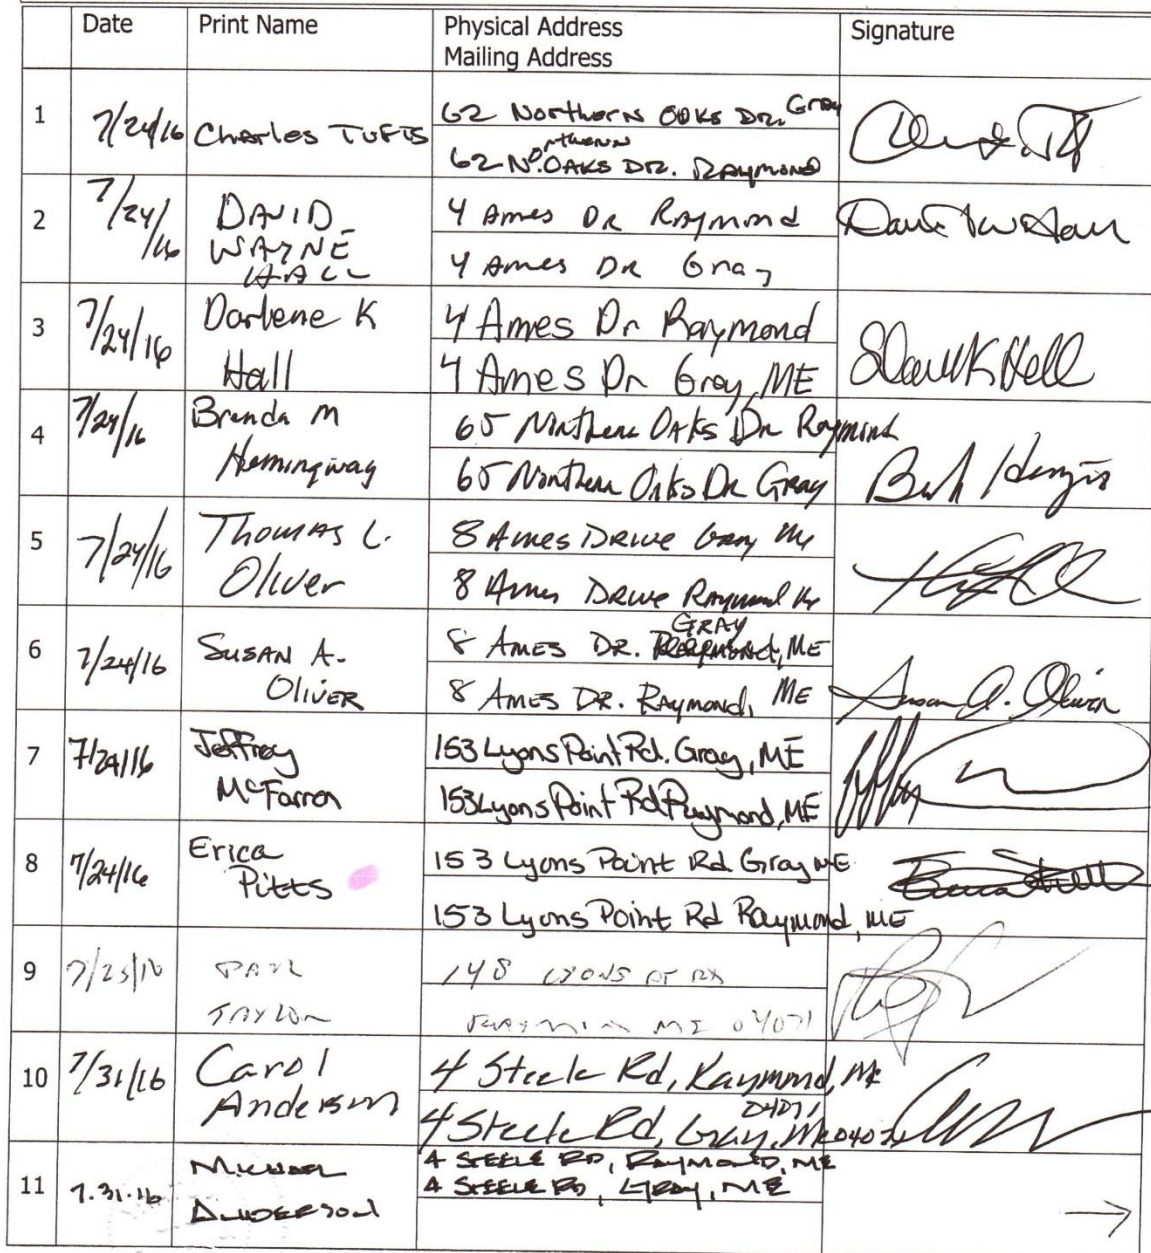 Date Print Name Physical Address Signature
Mailing Address
1 7/24/16 Charles TUFTS 62 Northern OOKS DR. Gray
62 No.rthern OAKS DR. RAYMOND
2 7/24/16 DAVID WAYNE HALL 4 Ames DR Raymond
4 Ames DR Gray
3 7/24/16 Darlene K Hall 4 Ames Dr Raymond
4 Ames Dr Gray, ME
4 7/24/16 Brenda M Hemingway 65 Northern Oaks Dr Raymond
65 Northern Oaks Dr Gray
5 7/24/16 Thomas L. Oliver 8 Ames Drive Gray Me
8 Ames Drive Raymond Me
6 7/24/16 SUSAN A. OLIVER 8 AMES DR. GRAY, ME
8 AMES DR. RAYMOND, ME
Susan A. Oliver
7 7/24/16 Jeffrey McFarron 153 Lyons Point Rd. Gray, ME
153 Lyons Point Rd Raymond, ME
8 7/24/16 Erica Pitts 153 Lyons Point Rd Gray ME
153 Lyons Point Rd Raymond, ME
9 7/25/16 PAUL TAYLOR 148 LYONS PT RD
RAYMOND ME 04071
10 7/31/16 Carol Anderson 4 Steele Rd, Raymond, ME
04071
4 Steele Rd, Gray, ME
11 7.31.16 MICHAEL ANDERSON 4 STEELE RD, RAYMOND, ME
4 STEELE RD, GRAY, ME
→